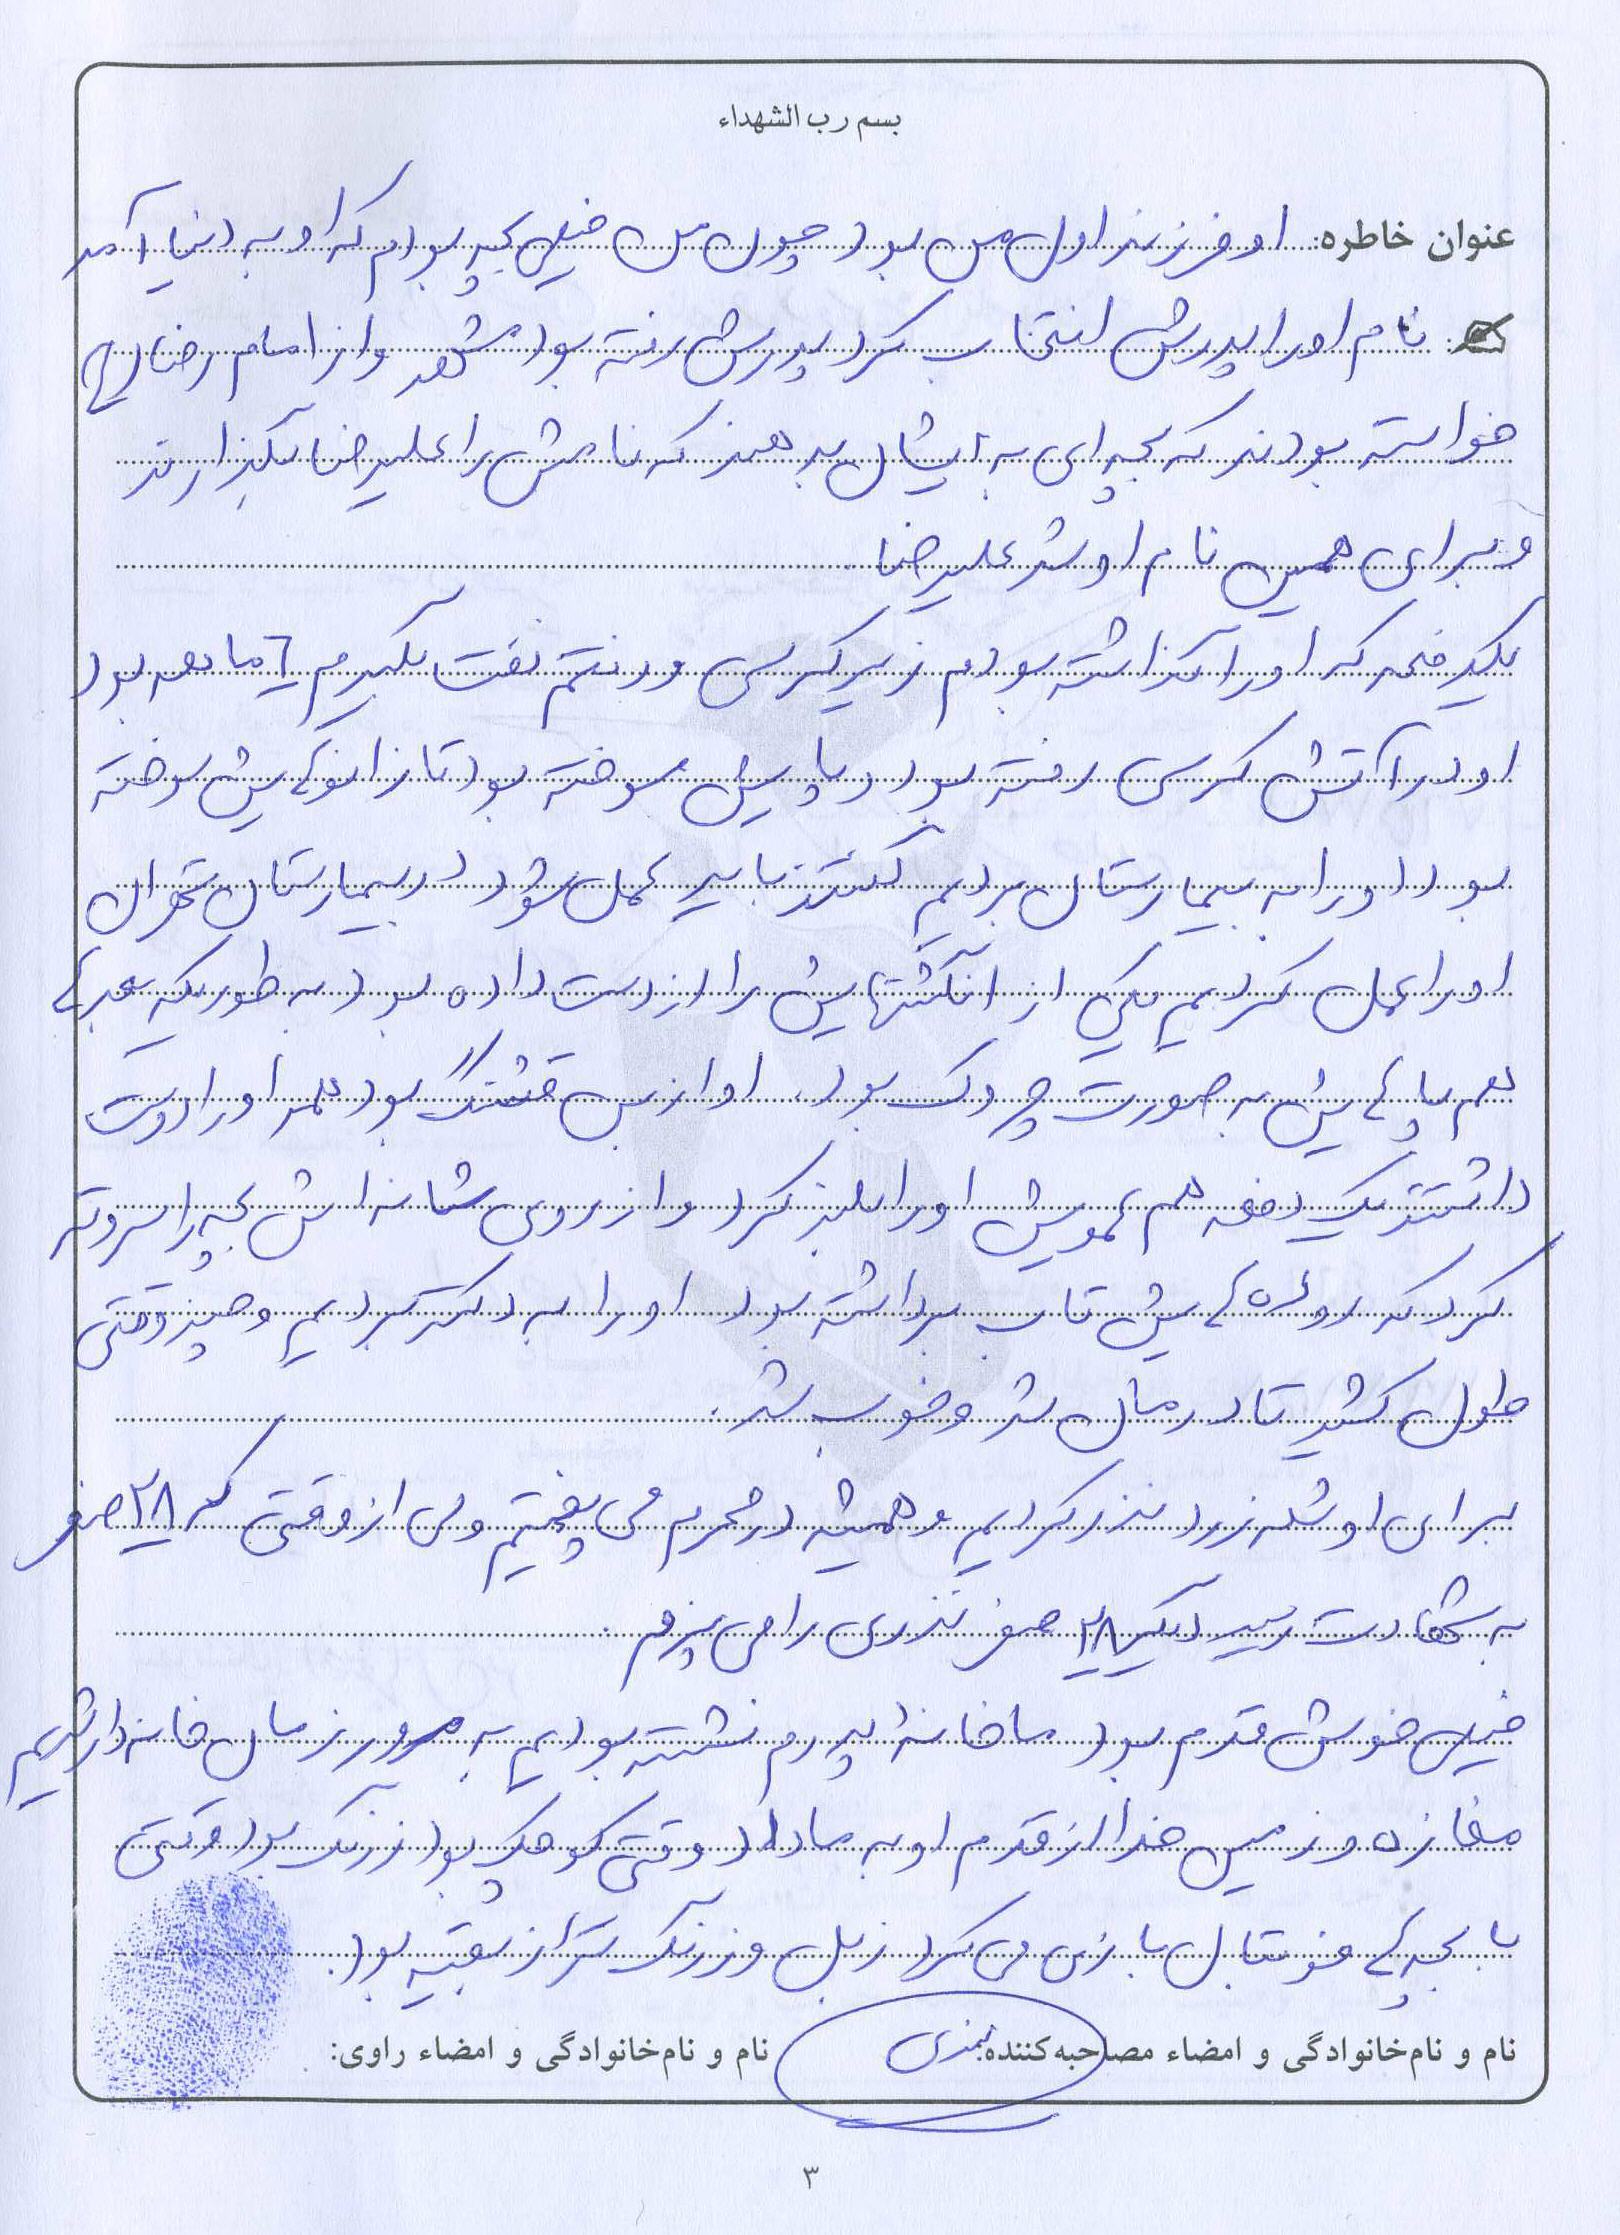 بسم رب الشهداء
عنوان خاطره: او فرزند اول من بود چون من خیلی بچه بودم که او به دنیا آمد
نام او را پدرش انتخاب کرد پدرش رفته بود مشهد و از امام رضا (ع)
خواسته بودند که بچه ای به ایشان بدهند که نامش را علیرضا بگذارند
و برای همین نام او شد علیرضا
یکدفعه که او را گذاشته بودم زیر کرسی و رفتم نفت بگیرم ٦ ماهه بود
او در آتش کرسی رفته بود و پایش سوخته بود تا زانوهایش سوخته
بود او را به بیمارستان بردیم گفتند باید عمل شود در بیمارستان تهران
او را عمل کردیم یکی از انگشتهایش را از دست داده بود به طوریکه بعدها
هم پاهایش به صورت چروک بود. او از بس قشنگ بود همه او را دوست
داشتند یک دفعه هم عمویش او را بلند کرد و از روی شانه اش بچه را سروته
کرد که روده هایش تاب برداشته بود او را به دکتر بردیم و چند وقتی
طول کشید تا درمان شد و خوب شد.
برای او شله زرد نذر کردیم و همیشه در محرم می پختیم ولی از وقتی که ۲۸ صفر
به شهادت رسید دیگر ۲۸ صفر نذری را می پزم.
خیلی خوش قدم بود ما خانه پدرم نشسته بودیم به مرور زمان خانه دار شدیم
مغازه و زمین خدا از قدم او به ما داد وقتی کوچک بود زرنگ بود وقتی
با بچه های فوتبال بازی می کرد زبل و زرنگ تر از بقیه بود.
نام و نام‌خانوادگی و امضاء مصاحبه‌کننده: نام و نام‌خانوادگی و امضاء راوی:
۳